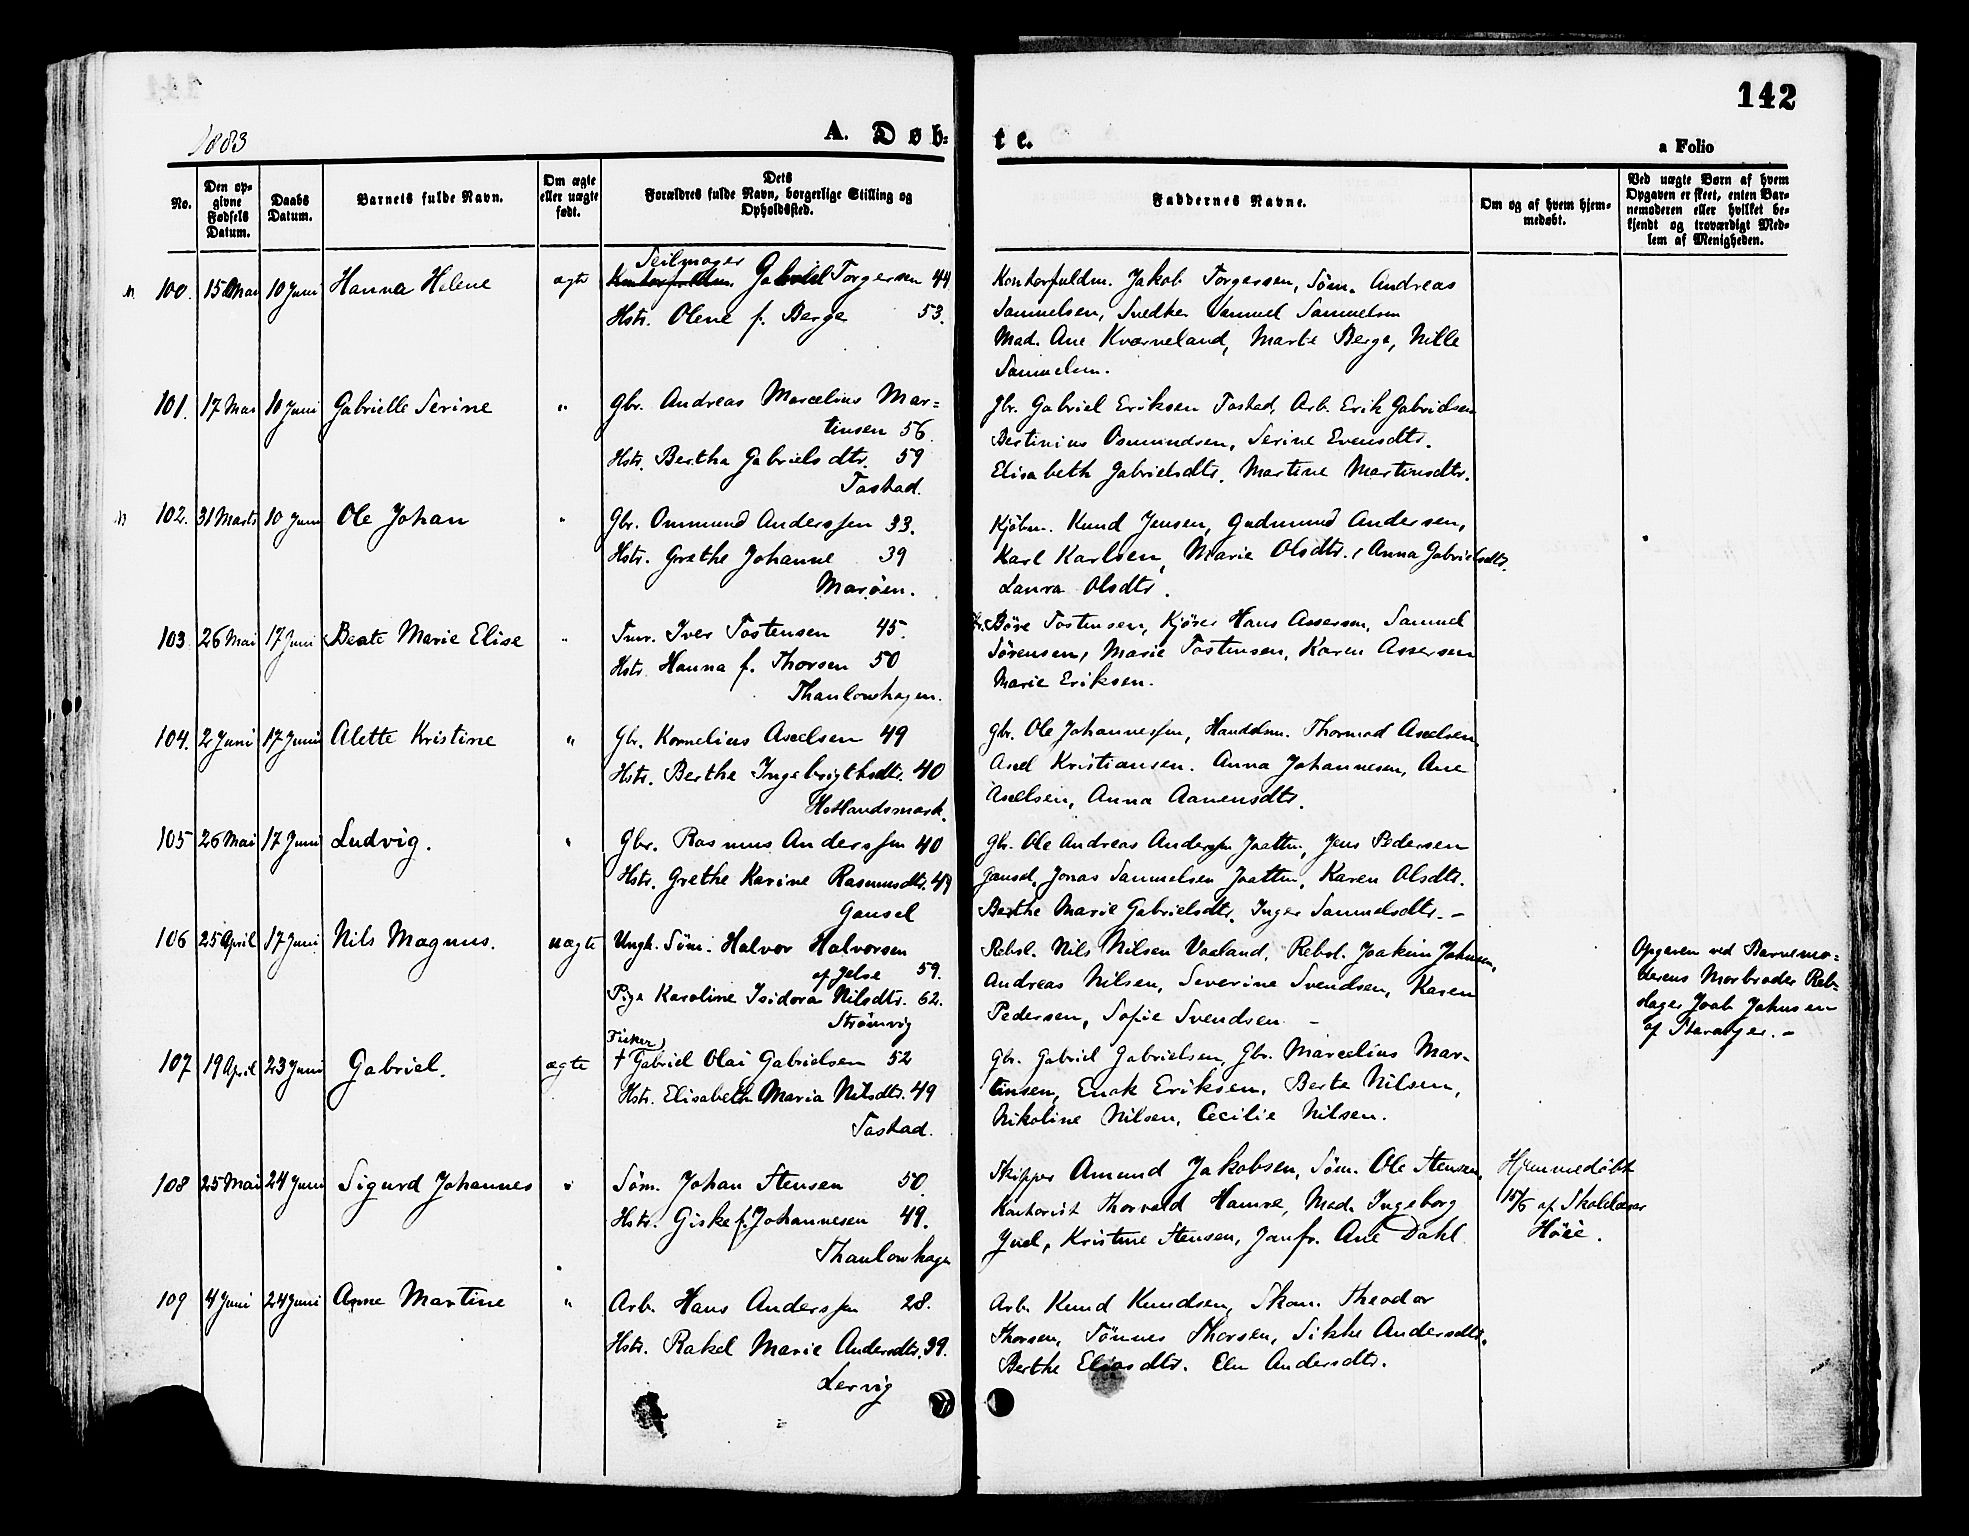 142
1883
A. Døb-
te.
a Folio
No.
Den op-
givne
Fødsels
Datum.
Daabs
Datum.
Barnets fulde Navn.
Om ægte
eller uægte
født.
Dets
Forældres fulde Navn, borgerlige Stilling og
Opholdssted.
Faddernes Navne.
Om og af hvem hjem-
medøbt.
Ved uægte Børn af hvem
Opgaven er skeet, enten Bar-
nemoderen eller hvilket be-
kjendt og troværdigt Med-
lem af Menigheden.
Seilmager
100. 15 Mai 10 Juni Hanna Helene ægte Kontorfuldm. Gabriel Torgersen 44
Hstr. Olene f. Berge 53.
Kontorfuldm. Jakob Torgersen, Søm. Andreas
Samuelsen, Snedker Samuel Samuelsen
Mad. Ane Kværneland, Marte Berge, Nille
Samuelsen.
101. 17 Mai 10 Juni Gabrielle Serine " Gbr. Andreas Marcelius Mar=
tinsen 56.
Hstr. Bertha Gabrielsdtr. 59
Tastad.
Gbr. Gabriel Eriksen Tastad, Arb. Erik Gabrielsen
Bertinius Osmundsen, Serine Evensdtr.
Elisabeth Gabrielsdtr. Martine Martinsdtr.
102. 31 Marts 10 Juni Ole Johan " Gbr. Ommund Anderssen 33.
Hstr. Grethe Johanne 39
Marøen.
Kjøbm. Knud Jensen, Gudmund Andersen,
Karl Karlsen, Marie Olsdtr., Anna Gabrielsdtr.
Laura Olsdtr.
103 26 Mai 17 Juni Beate Marie Elise " Tmr. Iver Tostensen 45.
Hstr. Hanna f. Thorsen 50
Thaulowhagen.
Børe Tostensen, Kjører Hans Assersen, Samuel
Sørensen, Marie Tostensen, Karen Assersen
Marie Eriksen.
104. 2 Juni 17 Juni Alette Kristine " Gbr. Kornelius Axelsen 49
Hstr. Berthe Ingebrigthsdtr. 40
Hetlandsmark.
Gbr. Ole Johannessen, Handelsm. Thormod Axelsen,
Axel Kristiansen. Anna Johannesen, Ane
Axelsen, Anna Aanensdtr.
105 26 Mai 17 Juni Ludvig. " Gbr. Rasmus Anderssen 40
Hstr. Grethe Karine Rasmusdtr. 49
Gausel
Gbr. Ole Andreas Anderssen Jaatten, Jens Pedersen
Gausel, Jonas Samuelsen Jaatten, Karen Olsdtr.
Berthe Marie Gabrielsdtr. Inger Samuelsdtr. –
106 25 April 17 Juni Nils Magnus. uægte Ungk. Søm. Halvor Halvorsen
af Jelse 59.
Pige Karoline Isidora Nilsdtr. 62.
Strømvig
Rebsl. Nils Nilsen Vaaland, Rebsl. Joakim Johnsen,
Andreas Nilsen, Severine Svendsen, Karen
Pedersen, Sofie Svendsen –
Opgaven ved Barnemo-
derens Morbroder Reb-
slager Joak Johnsen
af Stavanger. –
Fisker
107 19 April 23 Juni Gabriel. ægte † Gabriel Olai Gabrielsen 52
Hstr. Elisabeth Maria Nilsdtr. 49
Tastad.
Gbr. Gabriel Gabrielsen, Gbr. Marcelius Mar-
tinsen, Enok Eriksen, Berte Nilsen,
Nikoline Nilsen, Cecilie Nilsen.
108 25 Mai 24 Juni Sigurd Johannes " Søm. Johan Stensen 50.
Hstr. Giske f. Johannesen 49.
Thaulowhagen
Skipper Amund Jakobsen, Søm. Ole Stensen,
Kontorist Thorvald Hamre, Mad. Ingeborg
Juel, Kristine Stensen, Jomfr. Ane Dahl
Hjemmedøbt
15/6 af Skolelærer
Høie.
109 4 Juni 24 Juni Anne Martine " Arb. Hans Anderssen 28.
Hstr. Rakel Marie Andersdtr. 39.
Lervig
Arb. Knud Knudsen, Skom. Theodor
Thorsen, Tønnes Thorsen, Sikke Andersdtr.
Berthe Eliasdtr. Elen Andersdtr.